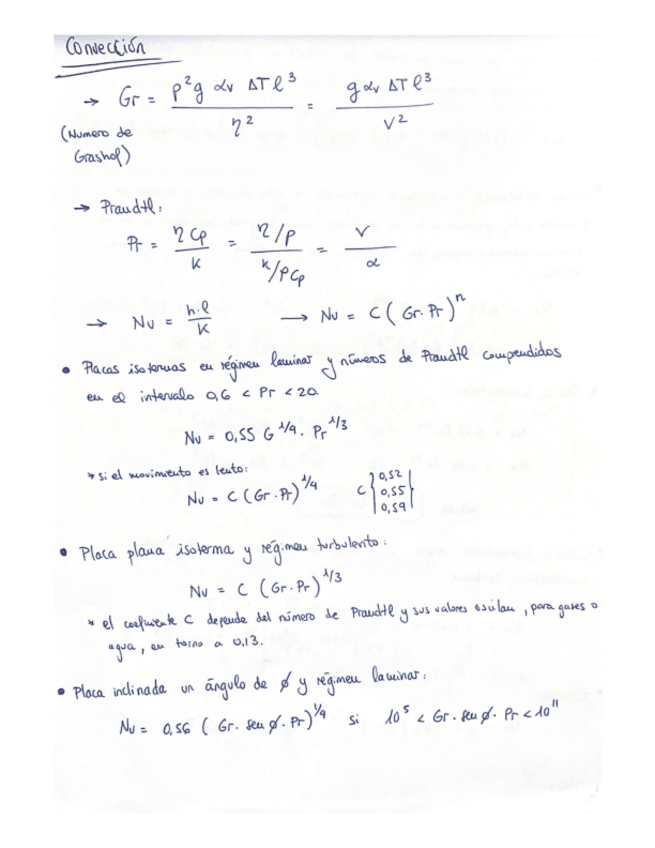 Convección
→ Gr = ρ²g αv ΔT ℓ³ / η² = g αv ΔT ℓ³ / ν²
(Numero de
Grashof)
→ Praudtl:
Pr = η Cp / K = η/ρ / k/ρCp = ν / α
→ Nu = h·ℓ / K → Nu = C (Gr·Pr)ⁿ
• Placas isotermas en régimen laminar y números de Praudtl comprendidos
en el intervalo 0,6 < Pr < 20.
Nu = 0,55 G^1/4 · Pr^1/3
* si el movimiento es lento:
Nu = C (Gr·Pr)^1/4 C { 0,52 0,55 0,59 }
• Placa plana isoterma y régimen turbulento:
Nu = C (Gr·Pr)^1/3
* el coeficiente C depende del número de Praudtl y sus valores oscilan, para gases o
agua, en torno a 0,13.
• Placa inclinada un ángulo de ø y régimen laminar:
Nu = 0,56 (Gr· sen ø · Pr)^1/4 si 10⁵ < Gr· sen ø · Pr < 10¹¹